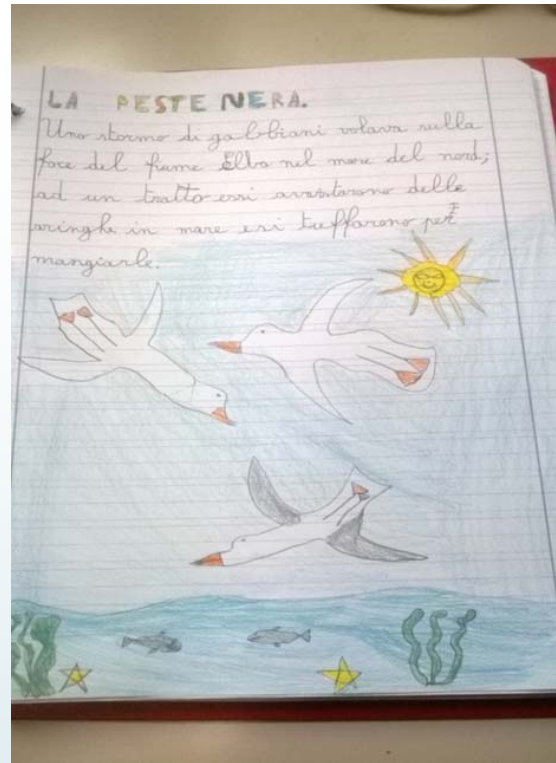 LA PESTE NERA.
Uno stormo di gabbiani volava sulla
foce del fiume Elba nel mare del nord;
ad un tratto essi avvistarono delle
aringhe in mare esi tuffarono per
mangiarle.